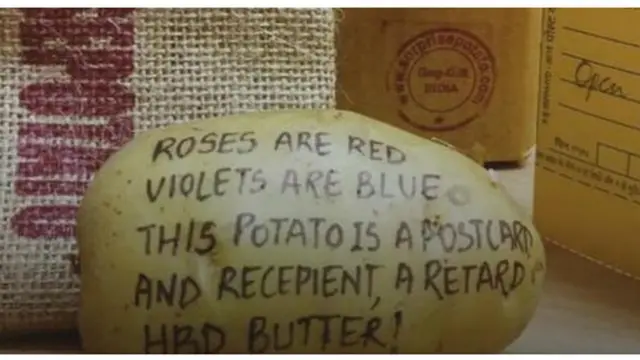 www.surprisepotato.com
INDIA
Open
ROSES ARE RED
VIOLETS ARE BLUE
THIS POTATO IS A POSTCARD
AND RECEPIENT, A RETARD
HBD BUTTER!